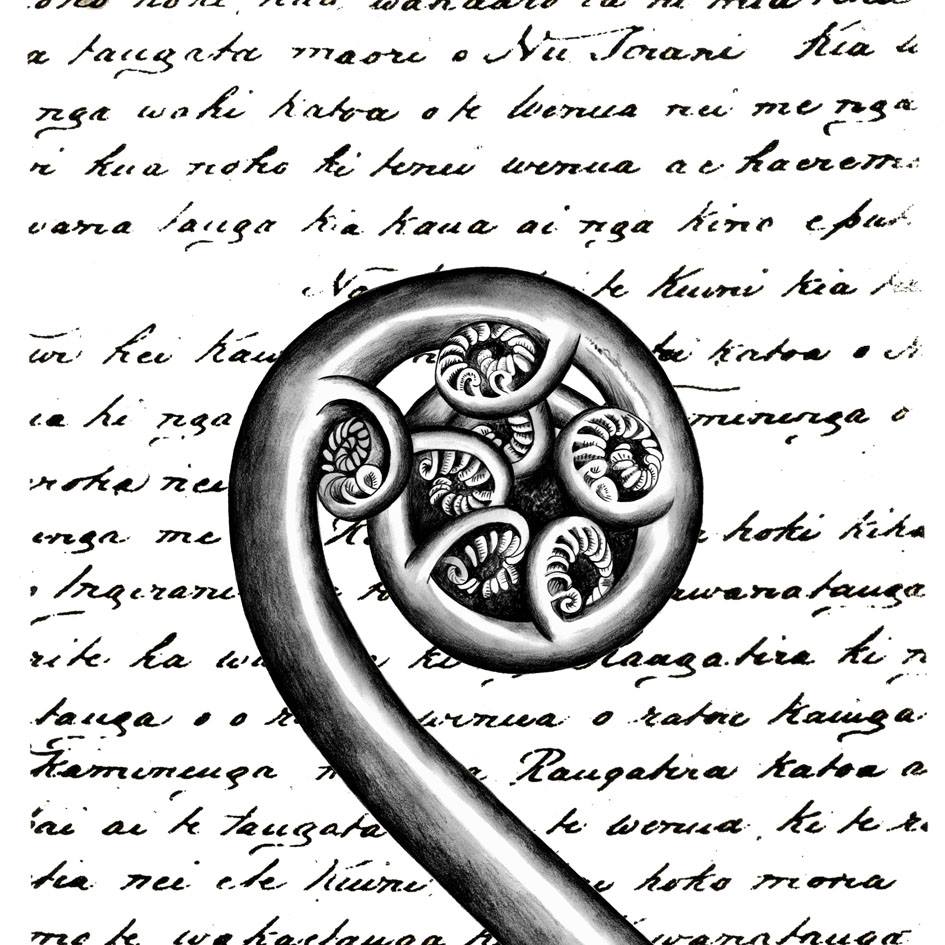 a tangata maori o Nu Tirani Kia w
nga wahi katoa o te wenua nei me nga
ri kua noho ki tenei wenua a e haerem
wana tanga kia kaua ai nga kino e put
te Kuini kia
hei Kaw katoa o N
ia ki nga minenga o
roha nei
enga me hoki kiho
Ingarani awanatanga
rite ka ki Rangatira ki n
tanga o o r wenua o ratou kainga
Kaminenga Rangatira katoa a
ai ai te tangata te wenua. Ki te r
tia nei e te Kuini hoko mona
me te wakaetanga wanatanga